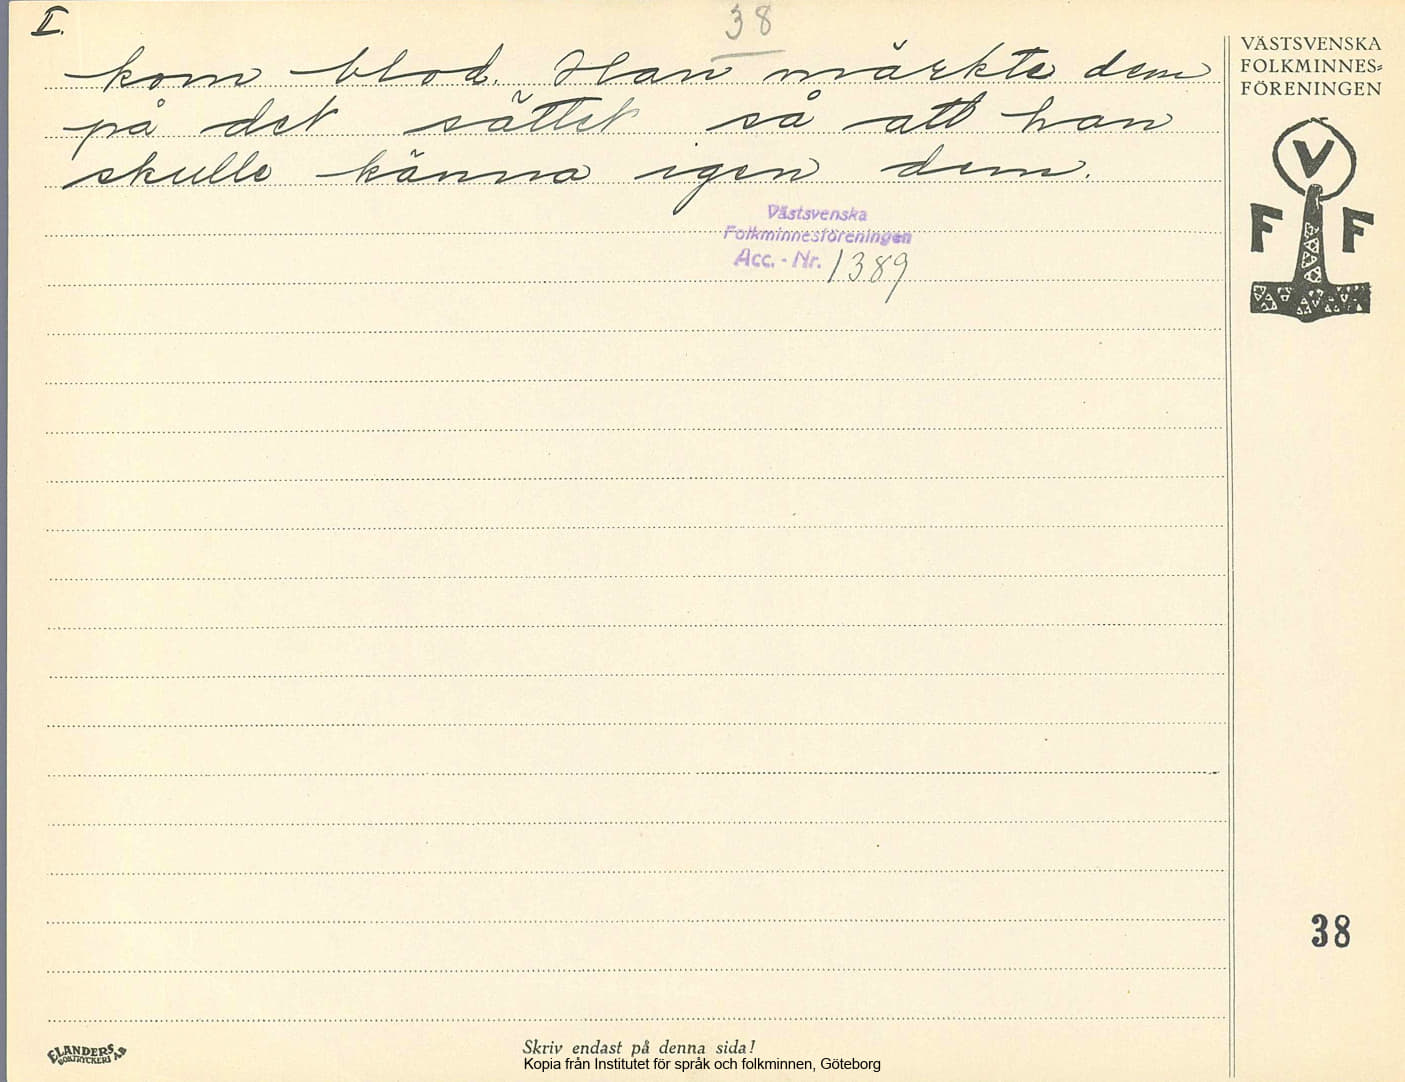 II.
38
kom blod. Han märkte dem
på det sättet så att han
skulle känna igen dem.
Västsvenska
Folkminnesföreningen
Acc. - Nr. 1389
VÄSTSVENSKA
FOLKMINNES-
FÖRENINGEN
V
F F
38
ELANDERS
BOKTRYCKERI A.B
Skriv endast på denna sida!
Kopia från Institutet för språk och folkminnen, Göteborg